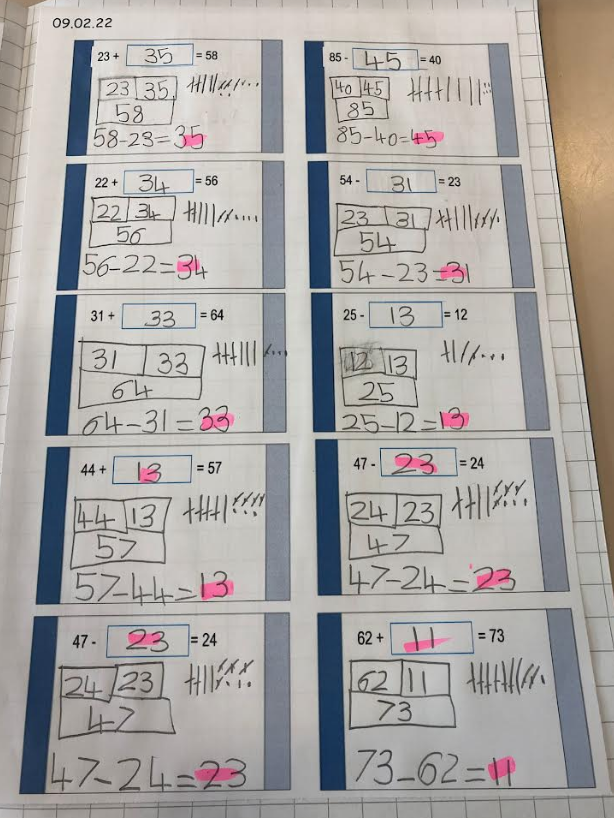 09.02.22
23 + 35 = 58
23 35
58
58-23=35
85 - 45 = 40
40 45
85
85-40=45
22 + 34 = 56
22 34
56
56-22=34
54 - 31 = 23
23 31
54
54-23=31
31 + 33 = 64
31 33
64
64-31=33
25 - 13 = 12
12 13
25
25-12=13
44 + 13 = 57
44 13
57
57-44=13
47 - 23 = 24
24 23
47
47-24=23
47 - 23 = 24
24 23
47
47-24=23
62 + 11 = 73
62 11
73
73-62=11